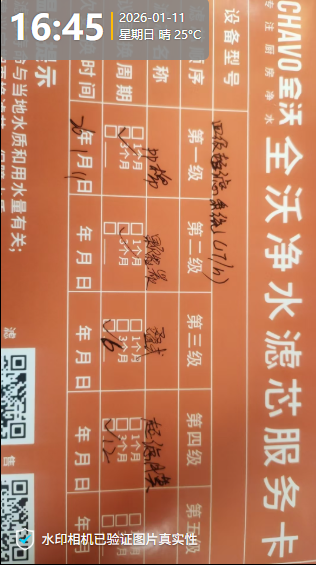 16:45
2026-01-11
星期日 晴 25°C
CHAVO全沃
专注厨房净水
全沃净水滤芯服务卡
设备型号
四级超滤系统(1T/h)
序
第一级
第二级
第三级
第四级
第五级
名称
PP棉
颗粒炭
超滤膜
周期
1个月
3个月
1个月
3个月
1个月
3个月
6
1个月
3个月
12
1个月
3个月
时间
26年1月11日
年 月 日
年 月 日
年 月 日
年
与当地水质和用水量有关;
滤
售
水印相机已验证图片真实性